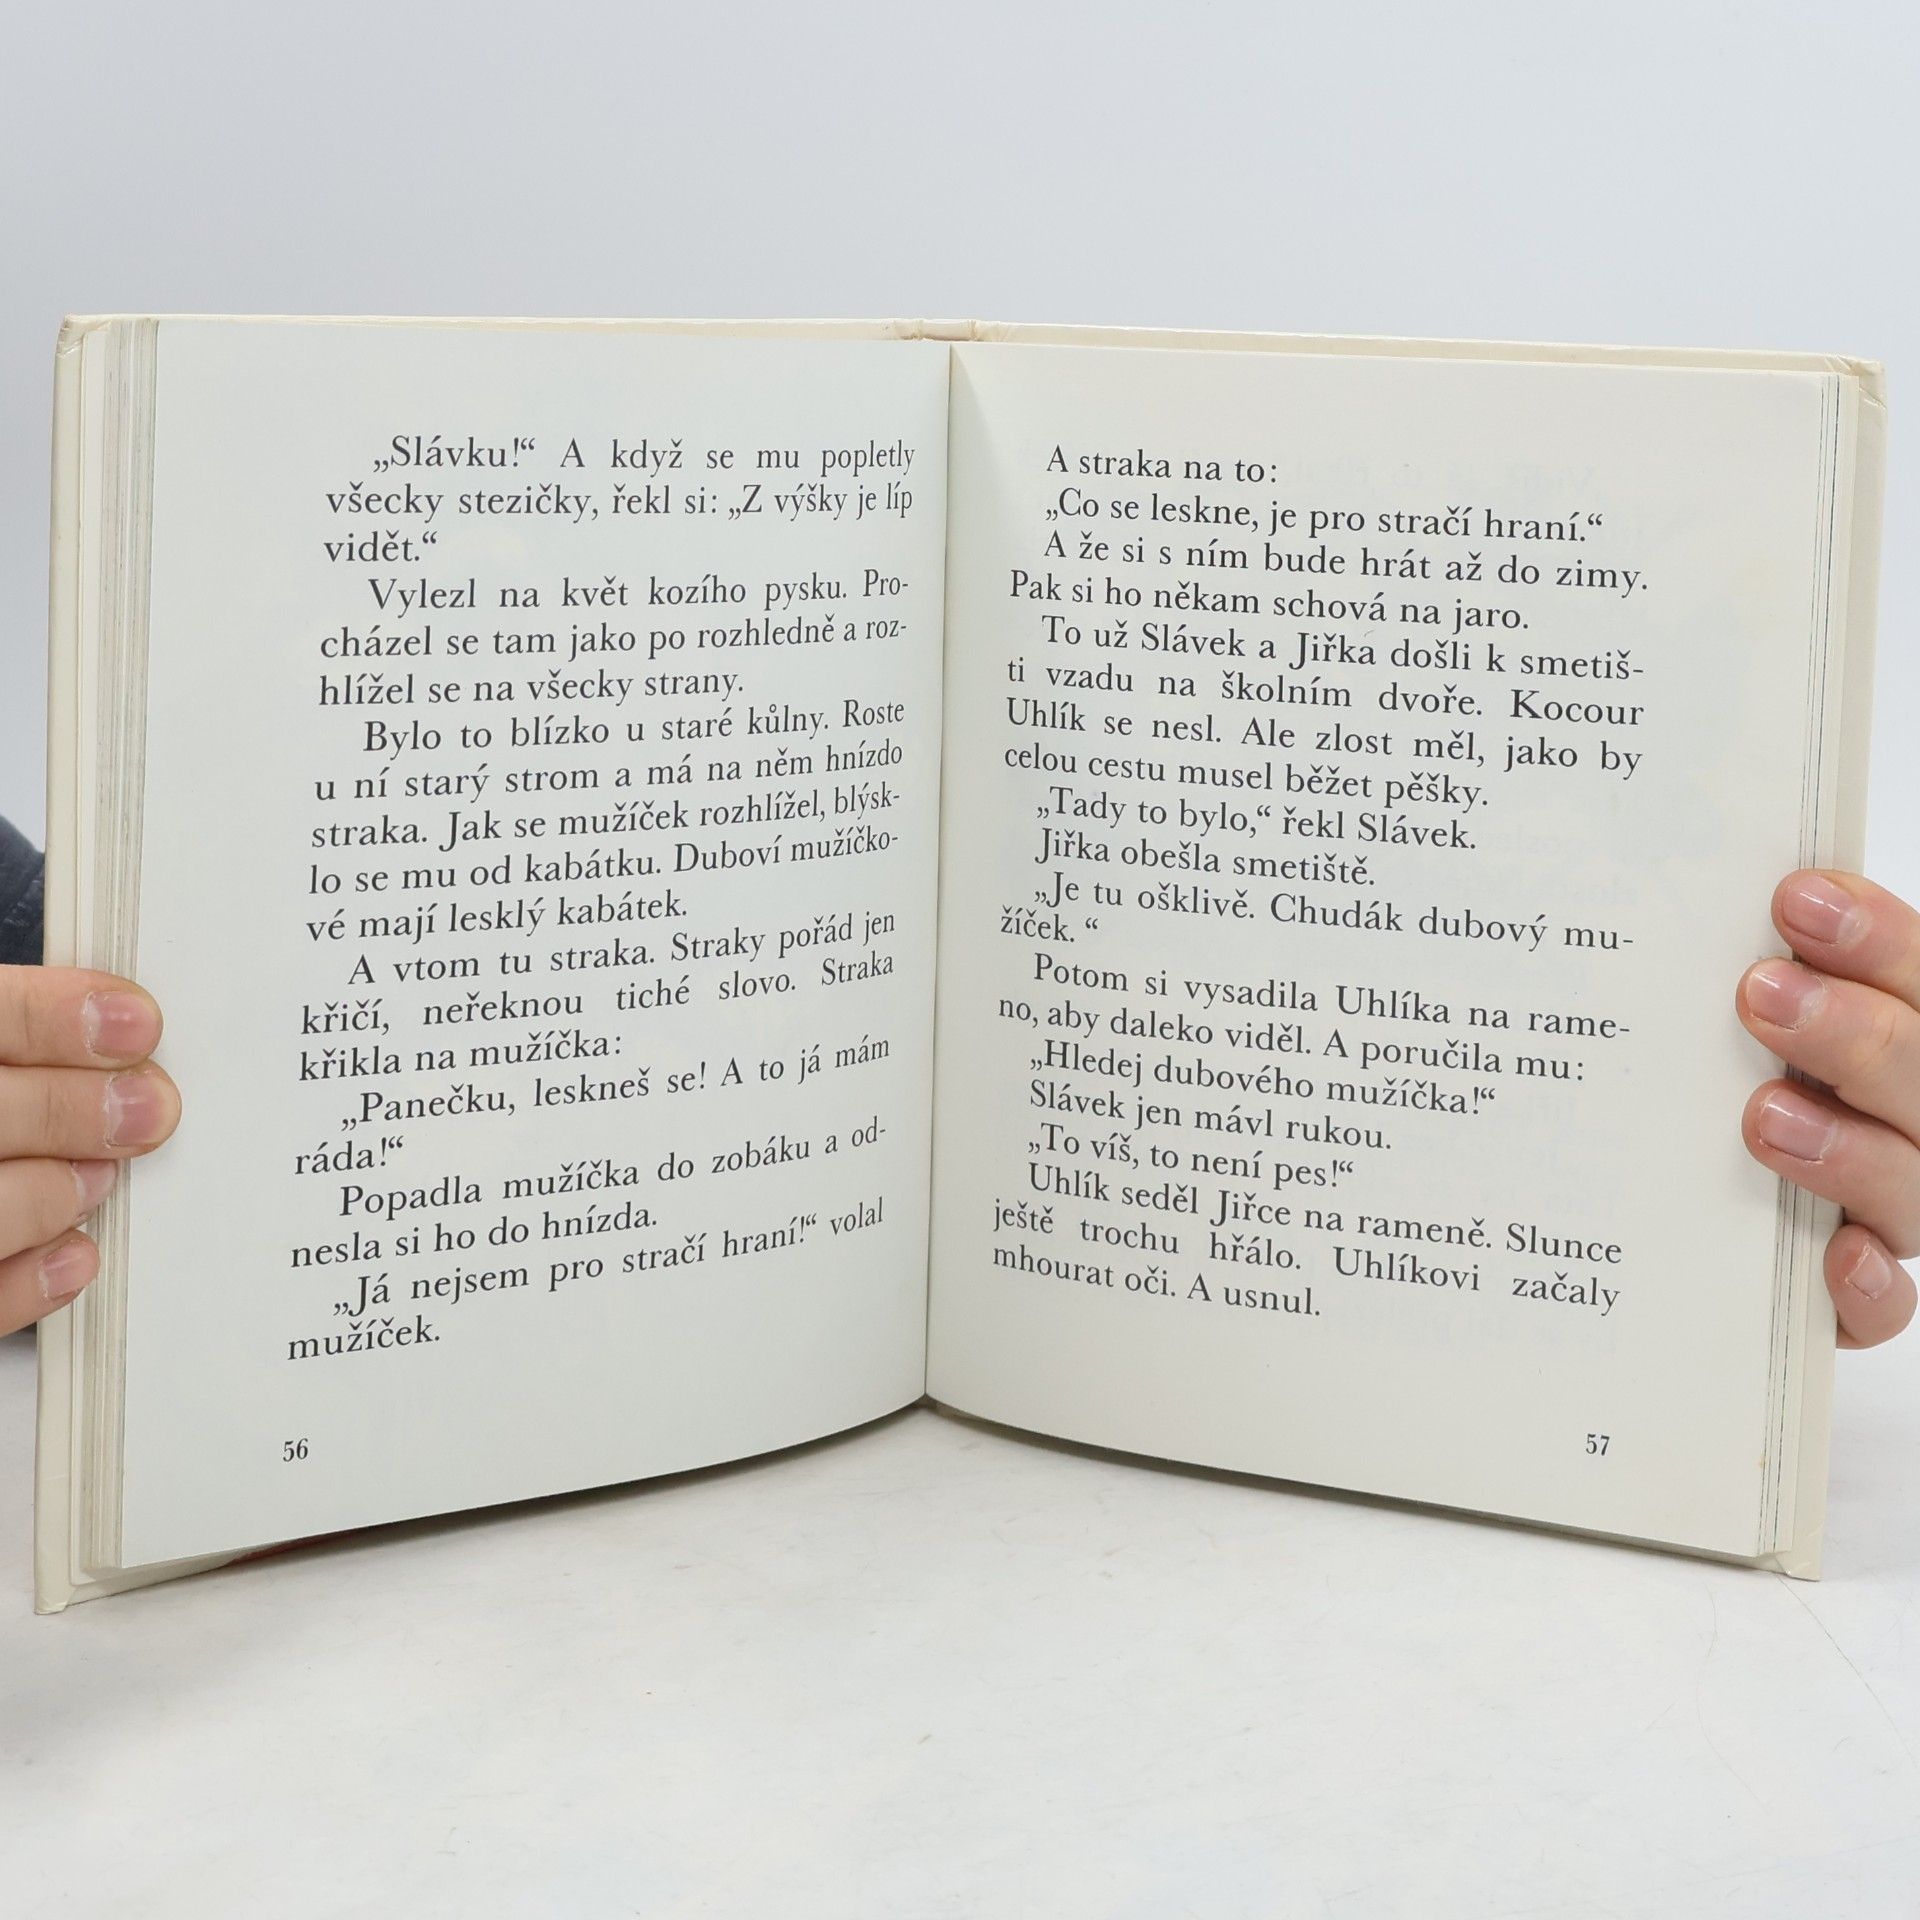 „Slávku!“ A když se mu popletly
všecky stezičky, řekl si: „Z výšky je líp
vidět.“
Vylezl na květ kozího pysku. Pro-
cházel se tam jako po rozhledně a roz-
hlížel se na všecky strany.
Bylo to blízko u staré kůlny. Roste
u ní starý strom a má na něm hnízdo
straka. Jak se mužíček rozhlížel, blýsk-
lo se mu od kabátku. Duboví mužíčko-
vé mají lesklý kabátek.
A vtom tu straka. Straky pořád jen
křičí, neřeknou tiché slovo. Straka
křikla na mužíčka:
„Panečku, leskneš se! A to já mám
ráda!“
Popadla mužíčka do zobáku a od-
nesla si ho do hnízda.
„Já nejsem pro stračí hraní!“ volal
mužíček.
56
A straka na to:
„Co se leskne, je pro stračí hraní.“
A že si s ním bude hrát až do zimy.
Pak si ho někam schová na jaro.
To už Slávek a Jiřka došli k smetiš-
ti vzadu na školním dvoře. Kocour
Uhlík se nesl. Ale zlost měl, jako by
celou cestu musel běžet pěšky.
„Tady to bylo,“ řekl Slávek.
Jiřka obešla smetiště.
„Je tu ošklivě. Chudák dubový mu-
žíček. “
Potom si vysadila Uhlíka na rame-
no, aby daleko viděl. A poručila mu:
„Hledej dubového mužíčka!“
Slávek jen mávl rukou.
„To víš, to není pes!“
Uhlík seděl Jiřce na rameně. Slunce
ještě trochu hřálo. Uhlíkovi začaly
mhourat oči. A usnul.
57